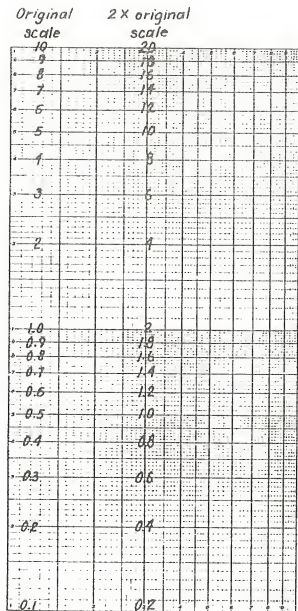 Original 2 X original
scale scale
10 20
9 18
8 16
7 14
6 12
5 10
4 8
3 6
2 4
1.0 2
0.9 1.8
0.8 1.6
0.7 1.4
0.6 1.2
0.5 1.0
0.4 0.8
0.3 0.6
0.2 0.4
0.1 0.2